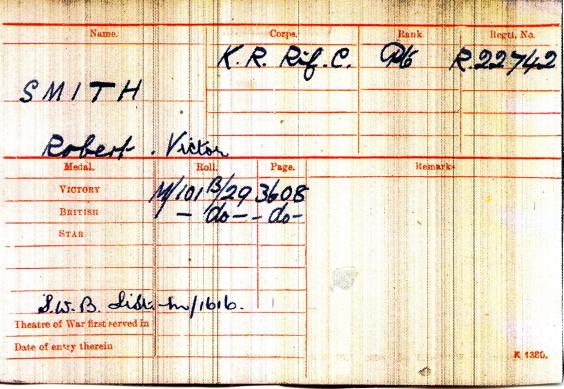 Name. Corps. Rank. Regtl. No.
K. R. Rif. C. Pte R.22742
SMITH
Robert. Victor
Medal. Roll. Page. Remarks
VICTORY M/101 B/29 3608
BRITISH - do - - do -
STAR
S.W.B. List /1616.
Theatre of War first served in
Date of entry therein
K 1380.